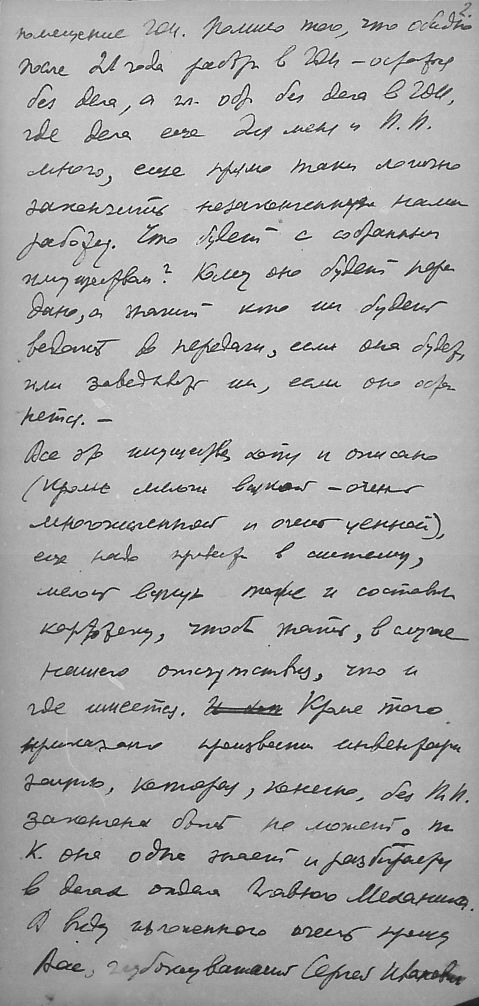 2.
помещение ГОИ. Помимо того, что обидно
после 21 года работы в ГОИ – остаться
без дела, а гл. обр. без дела в ГОИ,
где дела еще для меня и П.П.
много, еще прямо таки логично
закончить незаконченную нами
работу. Что будет с собранным
имуществом? Кому оно будет пере
дано, а значит кто им будет
ведать до передачи, если она будет,
или заведывать им, если оно оста
нется. –
Все это имущество хотя и описано
(кроме мелочи всякой – очень
многочисленной и очень ценной),
еще надо привести в систему,
мелочь тоже и составить
картотеку, чтоб знать, в случае
нашего отсутствия, что и
где имеется. Кроме того
приказано произвести инвентари
зацию, которая, конечно, без П.П.
закончена быть не может, т.
к. она одна знает и разбирается
в делах отдела Главного Механика.
В виду изложенного очень прошу
Вас, глубокоуважаемый Сергей Иванович